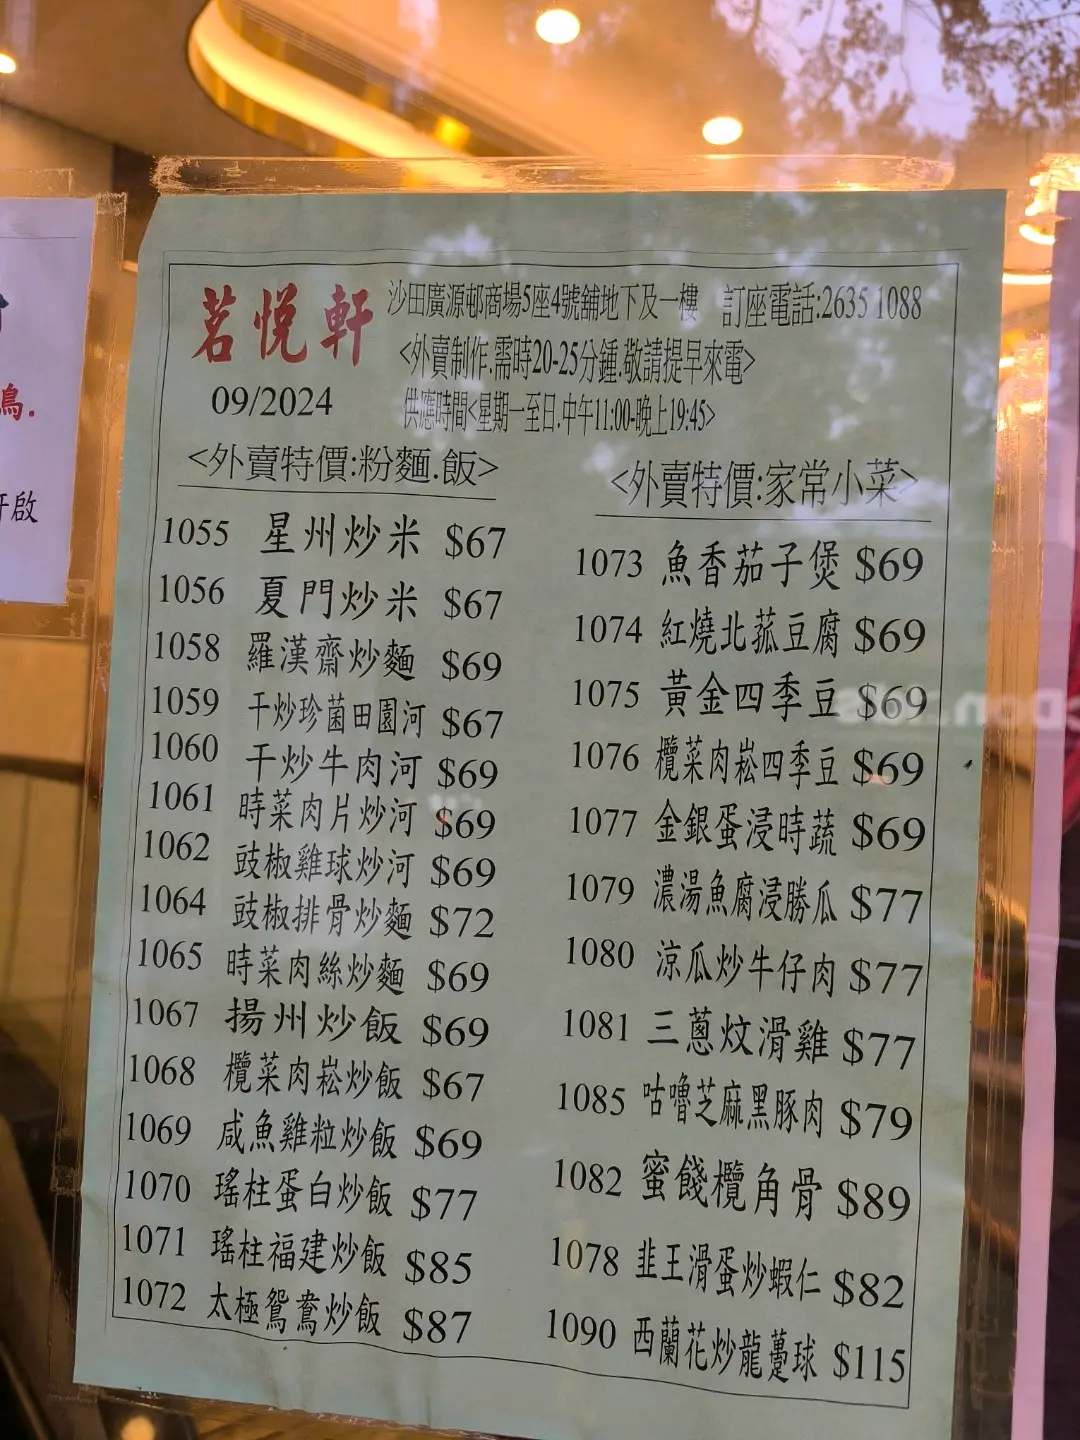 茗悅軒
沙田廣源邨商場5座4號舖地下及一樓 訂座電話:2635 1088
<外賣制作.需時20-25分鍾.敬請提早來電>
09/2024
供應時間<星期一至日.中午11:00-晚上19:45>
<外賣特價:粉麵.飯>
1055 星州炒米 $67
1056 夏門炒米 $67
1058 羅漢齋炒麵 $69
1059 干炒珍菌田園河 $67
1060 干炒牛肉河 $69
1061 時菜肉片炒河 $69
1062 豉椒雞球炒河 $69
1064 豉椒排骨炒麵 $72
1065 時菜肉絲炒麵 $69
1067 揚州炒飯 $69
1068 欖菜肉崧炒飯 $67
1069 咸魚雞粒炒飯 $69
1070 瑤柱蛋白炒飯 $77
1071 瑤柱福建炒飯 $85
1072 太極鴛鴦炒飯 $87
<外賣特價:家常小菜>
1073 魚香茄子煲 $69
1074 紅燒北菰豆腐 $69
1075 黃金四季豆 $69
1076 欖菜肉崧四季豆 $69
1077 金銀蛋浸時蔬 $69
1079 濃湯魚腐浸勝瓜 $77
1080 涼瓜炒牛仔肉 $77
1081 三蔥炆滑雞 $77
1085 咕嚕芝麻黑豚肉 $79
1082 蜜餞欖角骨 $89
1078 韭王滑蛋炒蝦仁 $82
1090 西蘭花炒龍躉球 $115
鳥.
啟